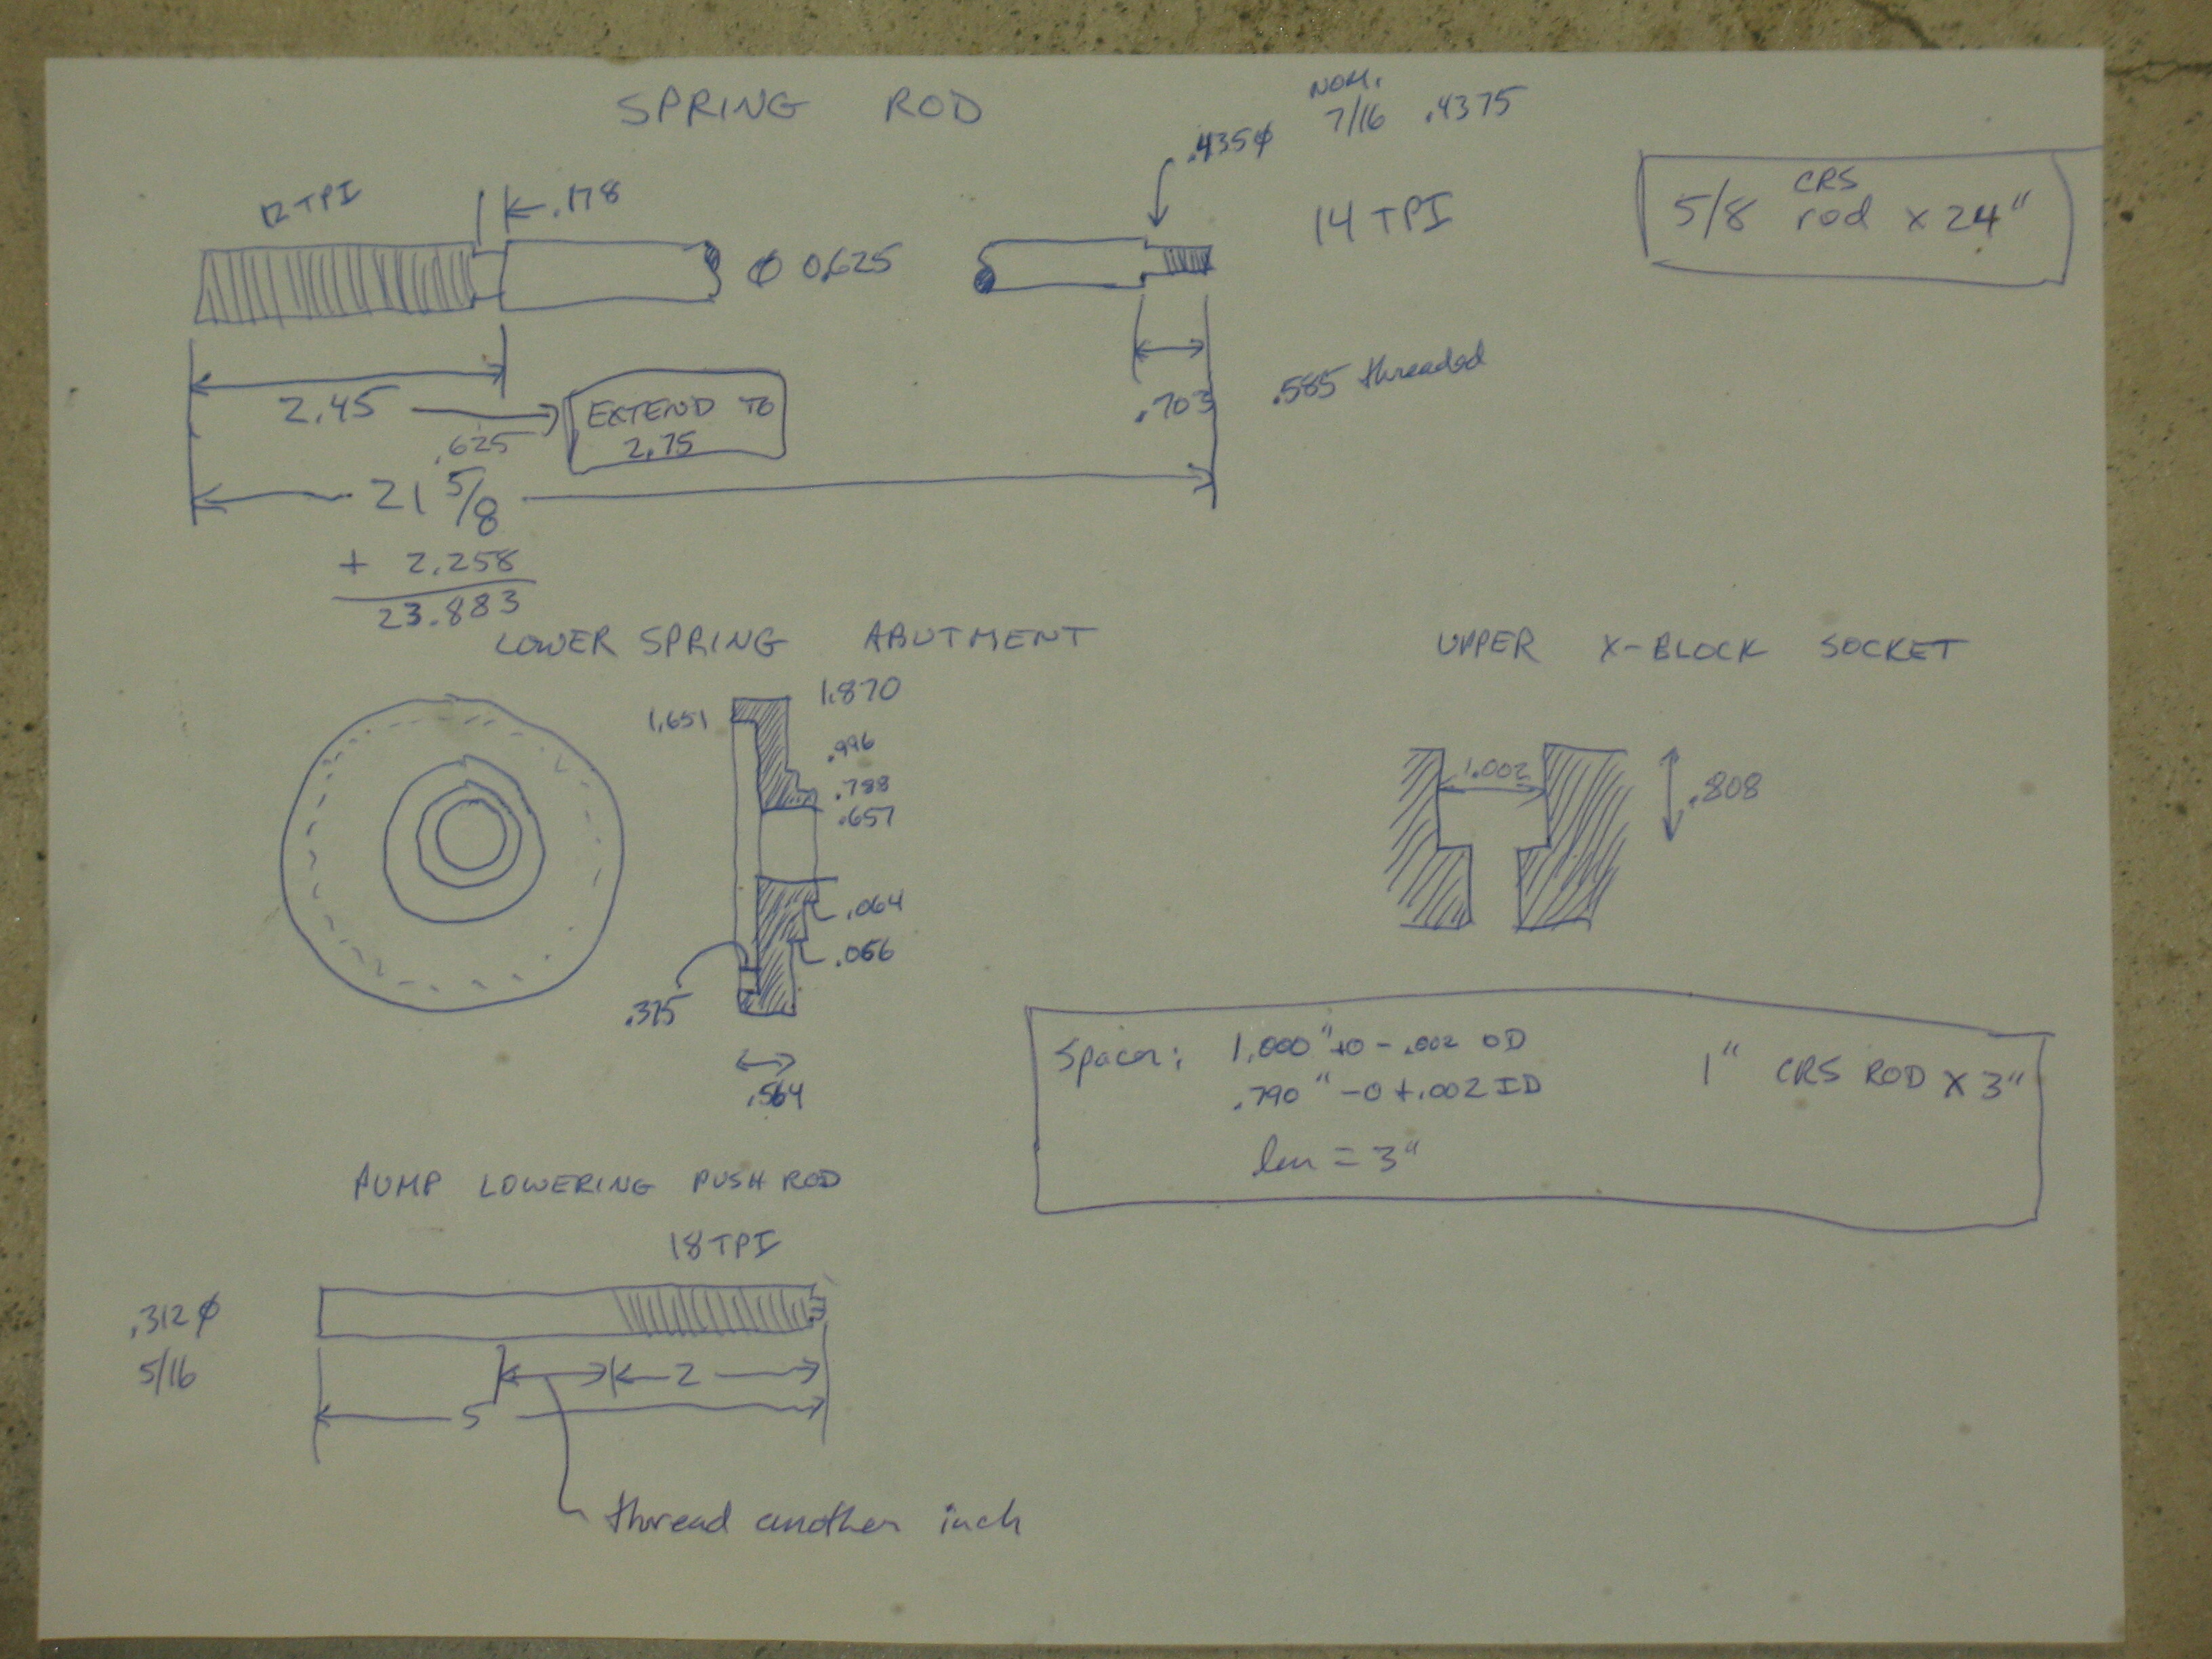 SPRING ROD
NOM.
7/16 .4375
.435φ
12 TPI
.178
14 TPI
CRS
5/8 rod x 24"
φ 0.625
2.45
EXTEND TO
2.75
.703
.585 threaded
.625
21 5/8
+ 2.258
23.883
LOWER SPRING ABUTMENT
UPPER X-BLOCK SOCKET
1.870
1.651
.996
.788
.657
.064
.066
.375
.564
1.002
.808
Spacer: 1.000" +0 -.002 OD
.790" -0 +.002 ID
len = 3"
1" CRS ROD x 3"
PUMP LOWERING PUSH ROD
18 TPI
.312 φ
5/16
2
5
thread another inch